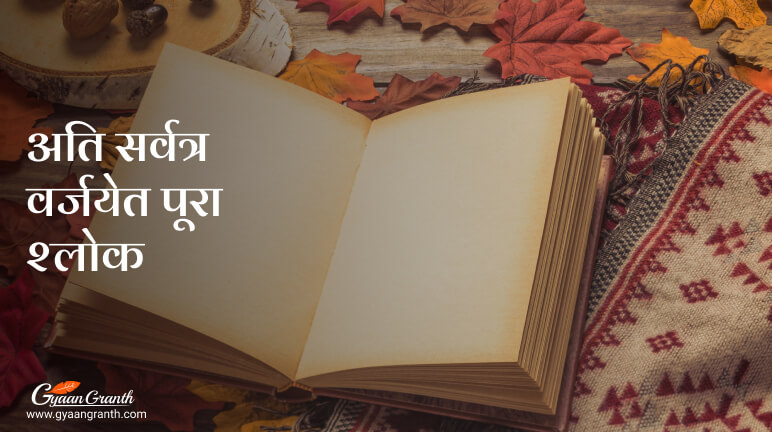 अति सर्वत्र
वर्जयेत पूरा
श्लोक
Gyaan Granth
www.gyaangranth.com